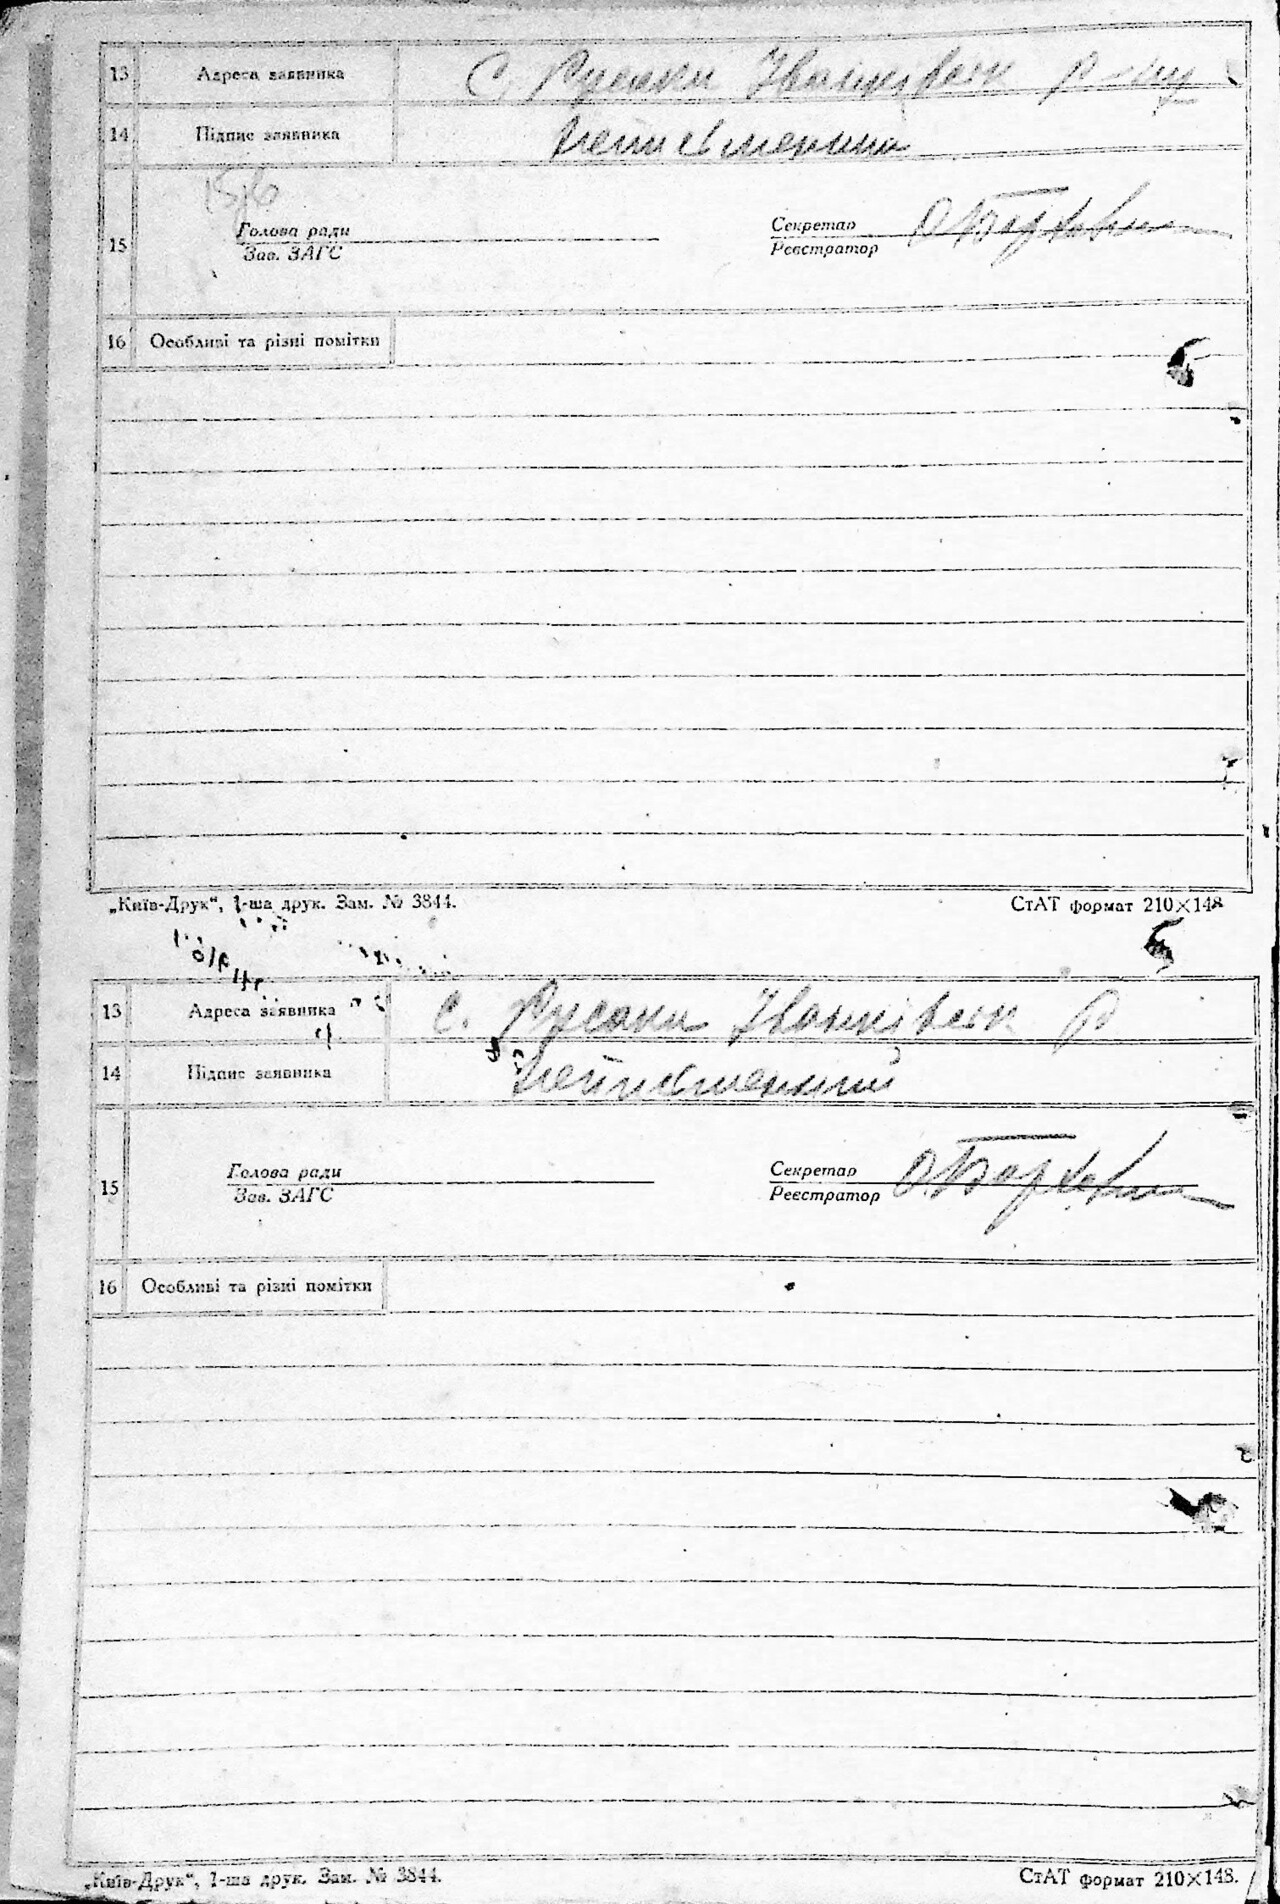 13 Адреса заявника С. Русаки Іванківськ р-ну
14 Підпис заявника неписьменний
156
15 Голова ради Секретар О Барков
Зав. ЗАГС Реєстратор
16 Особливі та різні помітки
„Київ-Друк“, 1-ша друк. Зам. № 3844. СтАТ формат 210×148
13 Адреса заявника С. Русаки Іванківськ р
14 Підпис заявника неписьменний
15 Голова ради Секретар
Зав. ЗАГС Реєстратор
16 Особливі та різні помітки
„Київ-Друк“, 1-ша друк. Зам. № 3844. СтАТ формат 210×148.